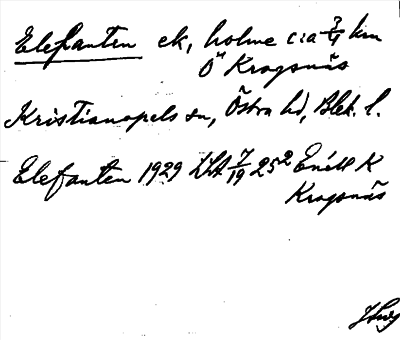 Elefanten ek, holme c:a 3/4 km
Ö Kragsnäs
Kristianopels sn, Östra hd, Blek. l.
Elefanten 1929 7/19 25² Enell K
Kragsnäs